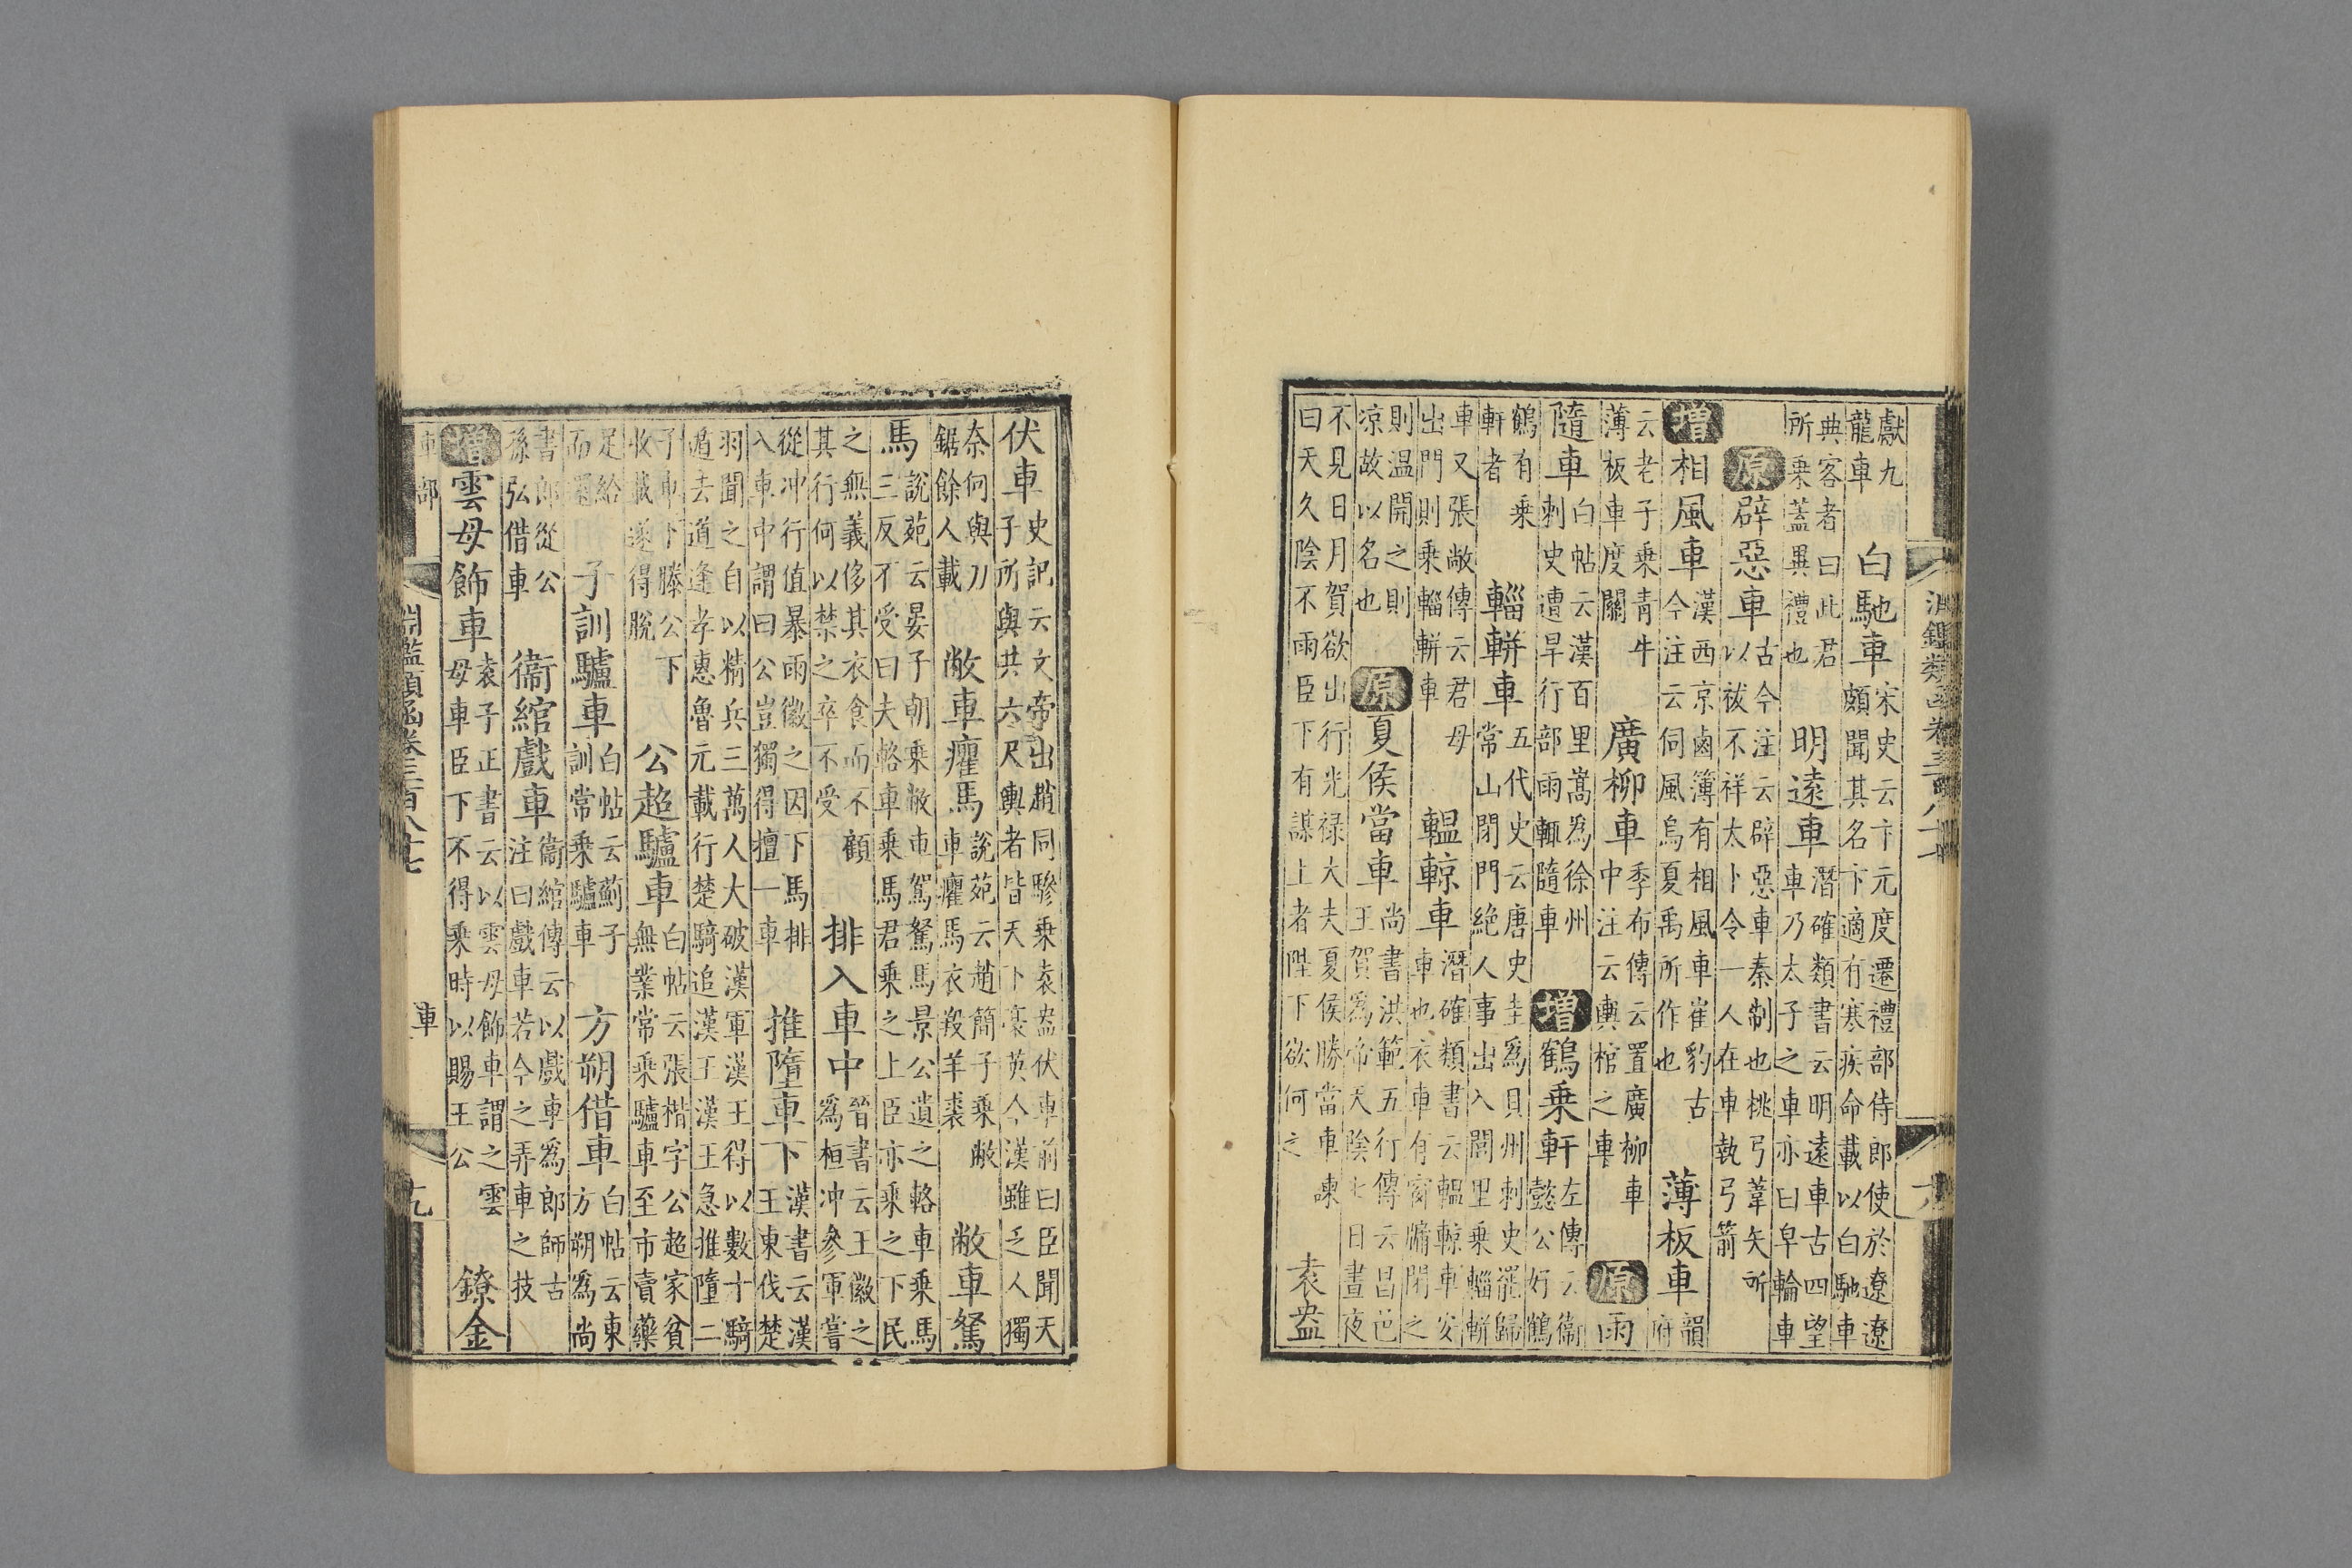 獻九龍車 白馳車 宋史云卞元度遷禮部侍郎使於遼遼頗聞其名卞適有寒疾命載以白馳車
典客者曰此君所乘蓋異禮也 明遠車 潛確類書云明遠車古四望車乃太子之車亦曰皁輪車
原辟惡車 古今注云辟惡車秦制也桃弓葦矢所以祓不祥太卜令一人在車執弓箭
增相風車 漢西京鹵簿有相風車崔豹古今注云伺風烏夏禹所作也 薄板車 韻府
云老子乘青牛薄板車度關 廣柳車 季布傳云置廣柳車中注云輿棺之車 原雨
隨車 白帖云漢百里嵩為徐州刺史遭旱行部雨輒隨車 增鶴乘軒 左傳云衞懿公好鶴
鶴有乘軒者 輜軿車 五代史云唐史圭為貝州刺史罷歸常山閉門絕人事出入閭里乘輜軿
車又張敞傳云君母出門則乘輜軿車 轀輬車 潛確類書云轀輬車安車也衣車有窗牖閉之
則温開之則凉故以名也 原夏侯當車 尚書洪範五行傳云昌邑王賀為帝天陰七日晝夜
不見日月賀欲出行光禄大夫夏侯勝當車諫曰天久陰不雨臣下有謀上者陛下欲何之 袁盎
淵鑑類函卷三百八十七
伏車 史記云文帝出趙同驂乘袁盎伏車前曰臣聞天子所與共六尺輿者皆天下豪英今漢雖乏人獨
奈何與刀鋸餘人載 敝車癯馬 說苑云趙簡子乘敝車癯馬衣羖羊裘 敝車駑
馬 說苑云晏子朝乘敝車駕駑馬景公遺之輅車乘馬三反不受曰夫輅車乘馬君乘之上臣亦乘之下民
之無義侈其衣食而不顧其行何以禁之卒不受 排入車中 晉書云王徽之為桓冲參軍嘗
從冲行值暴雨徽之因下馬排入車中謂曰公豈獨得擅一車 推墮車下 漢書云漢王東伐楚
羽聞之自以精兵三萬人大破漢軍漢王得以數十騎遁去道逢孝惠魯元載行楚騎追漢王漢王急推墮二
子車下滕公下收載遂得脫 公超驢車 白帖云張楷字公超家貧無業常乘驢車至市賣藥
足給而還 子訓驢車 白帖云薊子訓常乘驢車 方朔借車 白帖云東方朔為尚
書郎從公孫弘借車 衞綰戲車 衞綰傳云以戲車為郎師古注曰戲車若今之弄車之技
增雲母飾車 袁子正書云以雲母飾車謂之雲母車臣下不得乘時以賜王公 鐐金
車部 淵鑑類函卷三百八十七 車 九